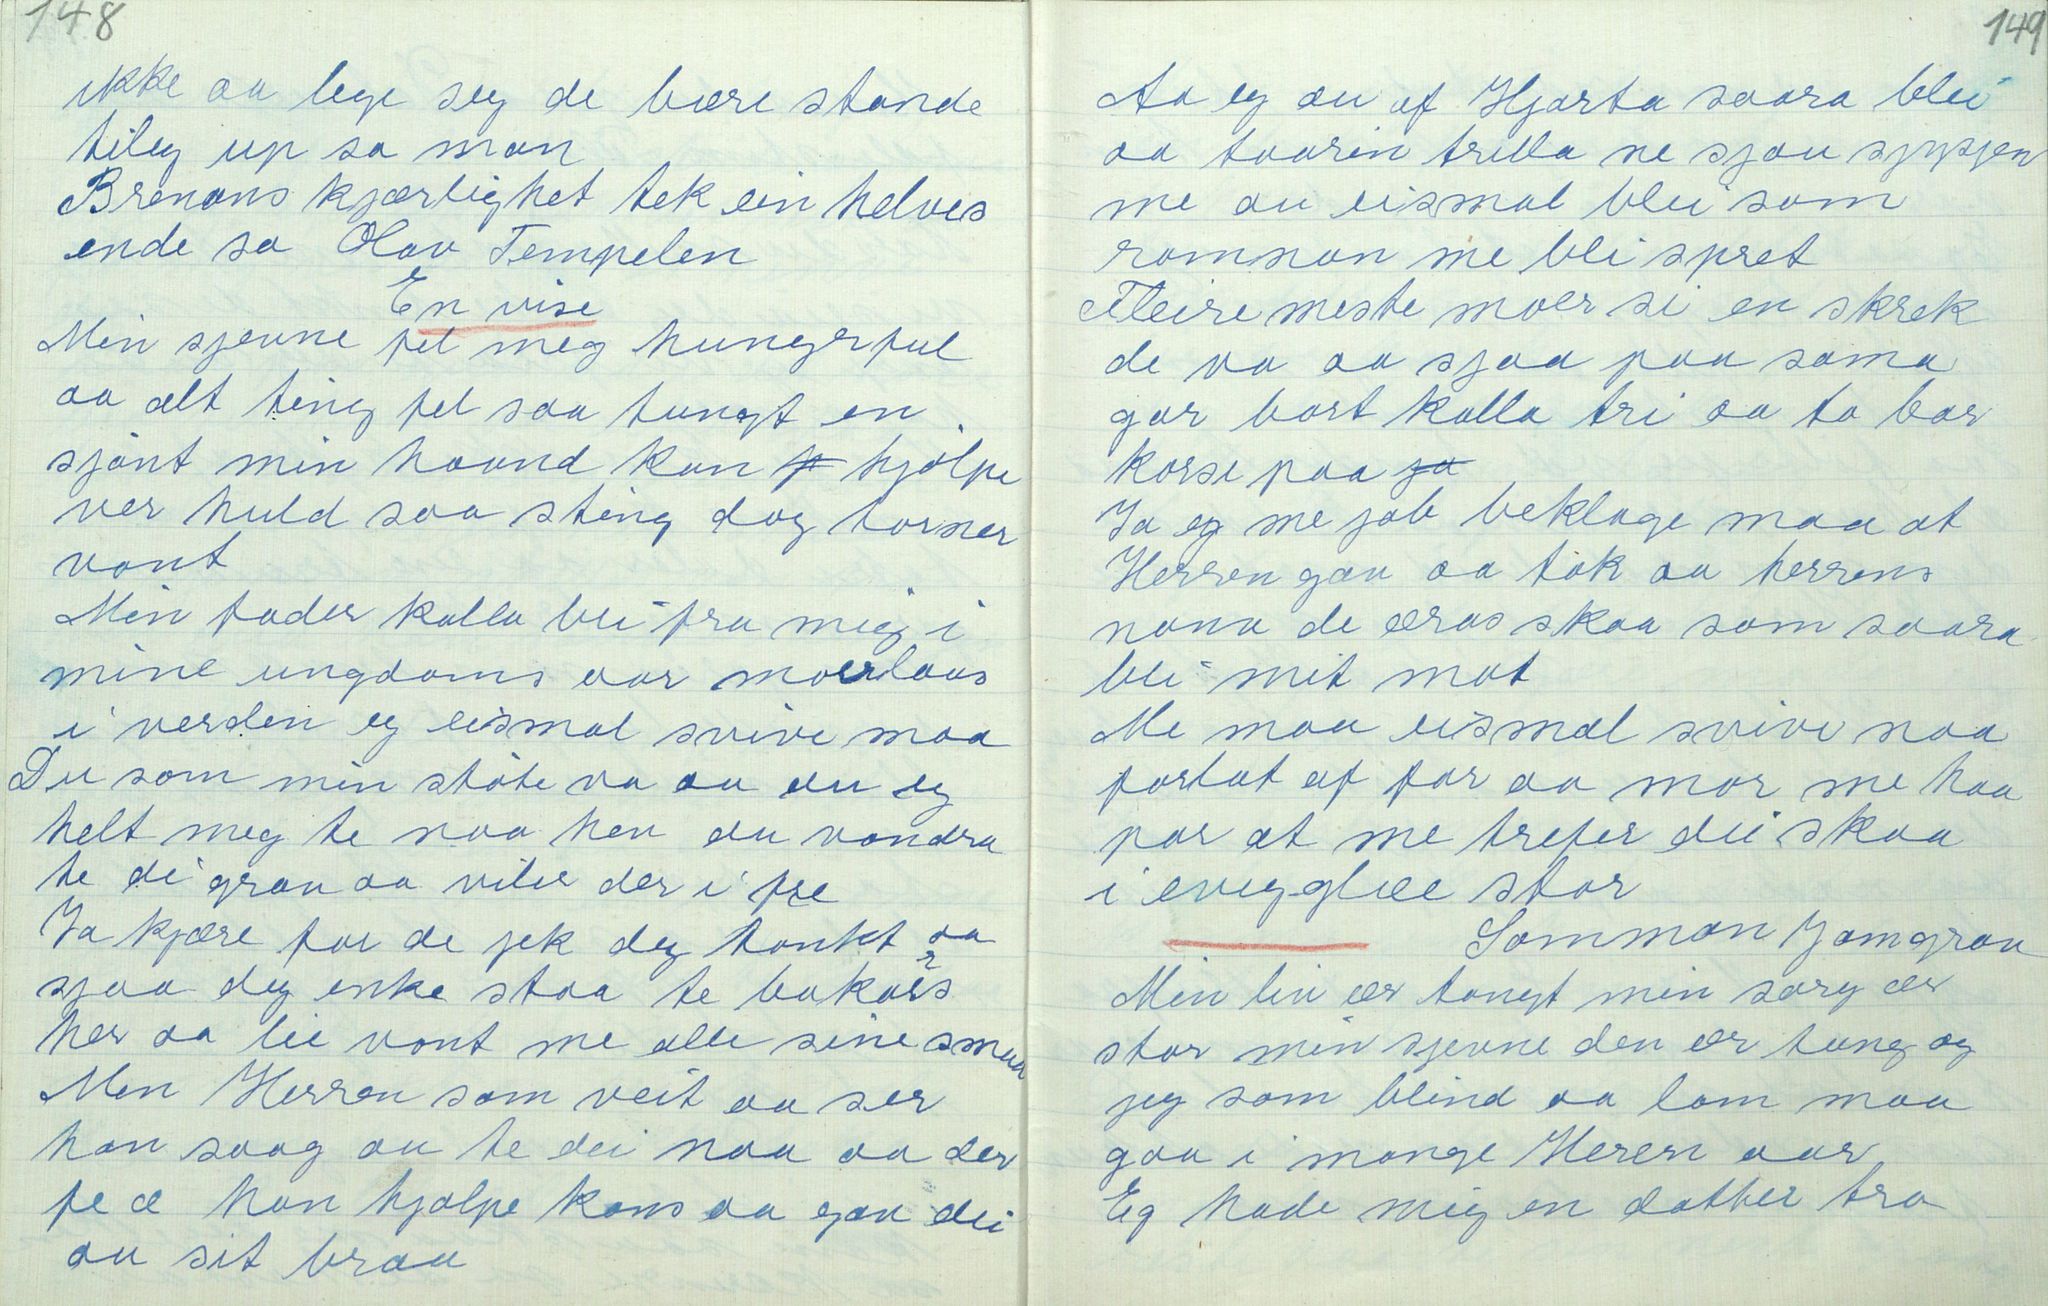 148
ikke aa lege seg de bære stande
tileg up sa man
Brenans kjærlighet tek ein helves
ende sa Olav Tempelen
En vise
Min sjevne fel meg hungerful
aa alt ting fel saa tungt en
sjönt min haand kan hjölpe
ver huld saa sting dog torner
vont
Min fader kalla blei fra mig i
mine ungdoms aar moerlaus
i verden eg eismal svive maa
Du som min stöte va aa au eg
helt meg te naa hev du vandra
te di grav aa viler der i fre
Ja kjære far de jek deg tankt aa
sjaa deg enke staa te bakars
her aa lie vont me alle sine smaa
Men Herren som veit aa ser
han saag au te dei naa aa der
fe æ han hjalpe kans aa gav dei
au sit brau
149
Aa eg au af Hjarta saara blei
aa taarin trilla ne sjau sysjen
me au eismal blei som
ramnan me bli spret
Fleire meste moer si en skrek
de va aa sjaa paa sama
gar bort kalla tri aa to bar
korsi paa
Ja eg me job beklage maa at
Herren gav aa tok aa herrens
navn de æras skaa som saara
blei mit mot
Me maa eismal svive naa
forlat af far aa mor me haa
par at me trefer dei skaa
i eveg glæe stor
Samman Jamgrav
Min liv ær tongt min sorg ær
stor min sjevne den ær tung og
jeg som blind aa lam maa
gaa i mange Heren aar
Eg hade mig en datter tro